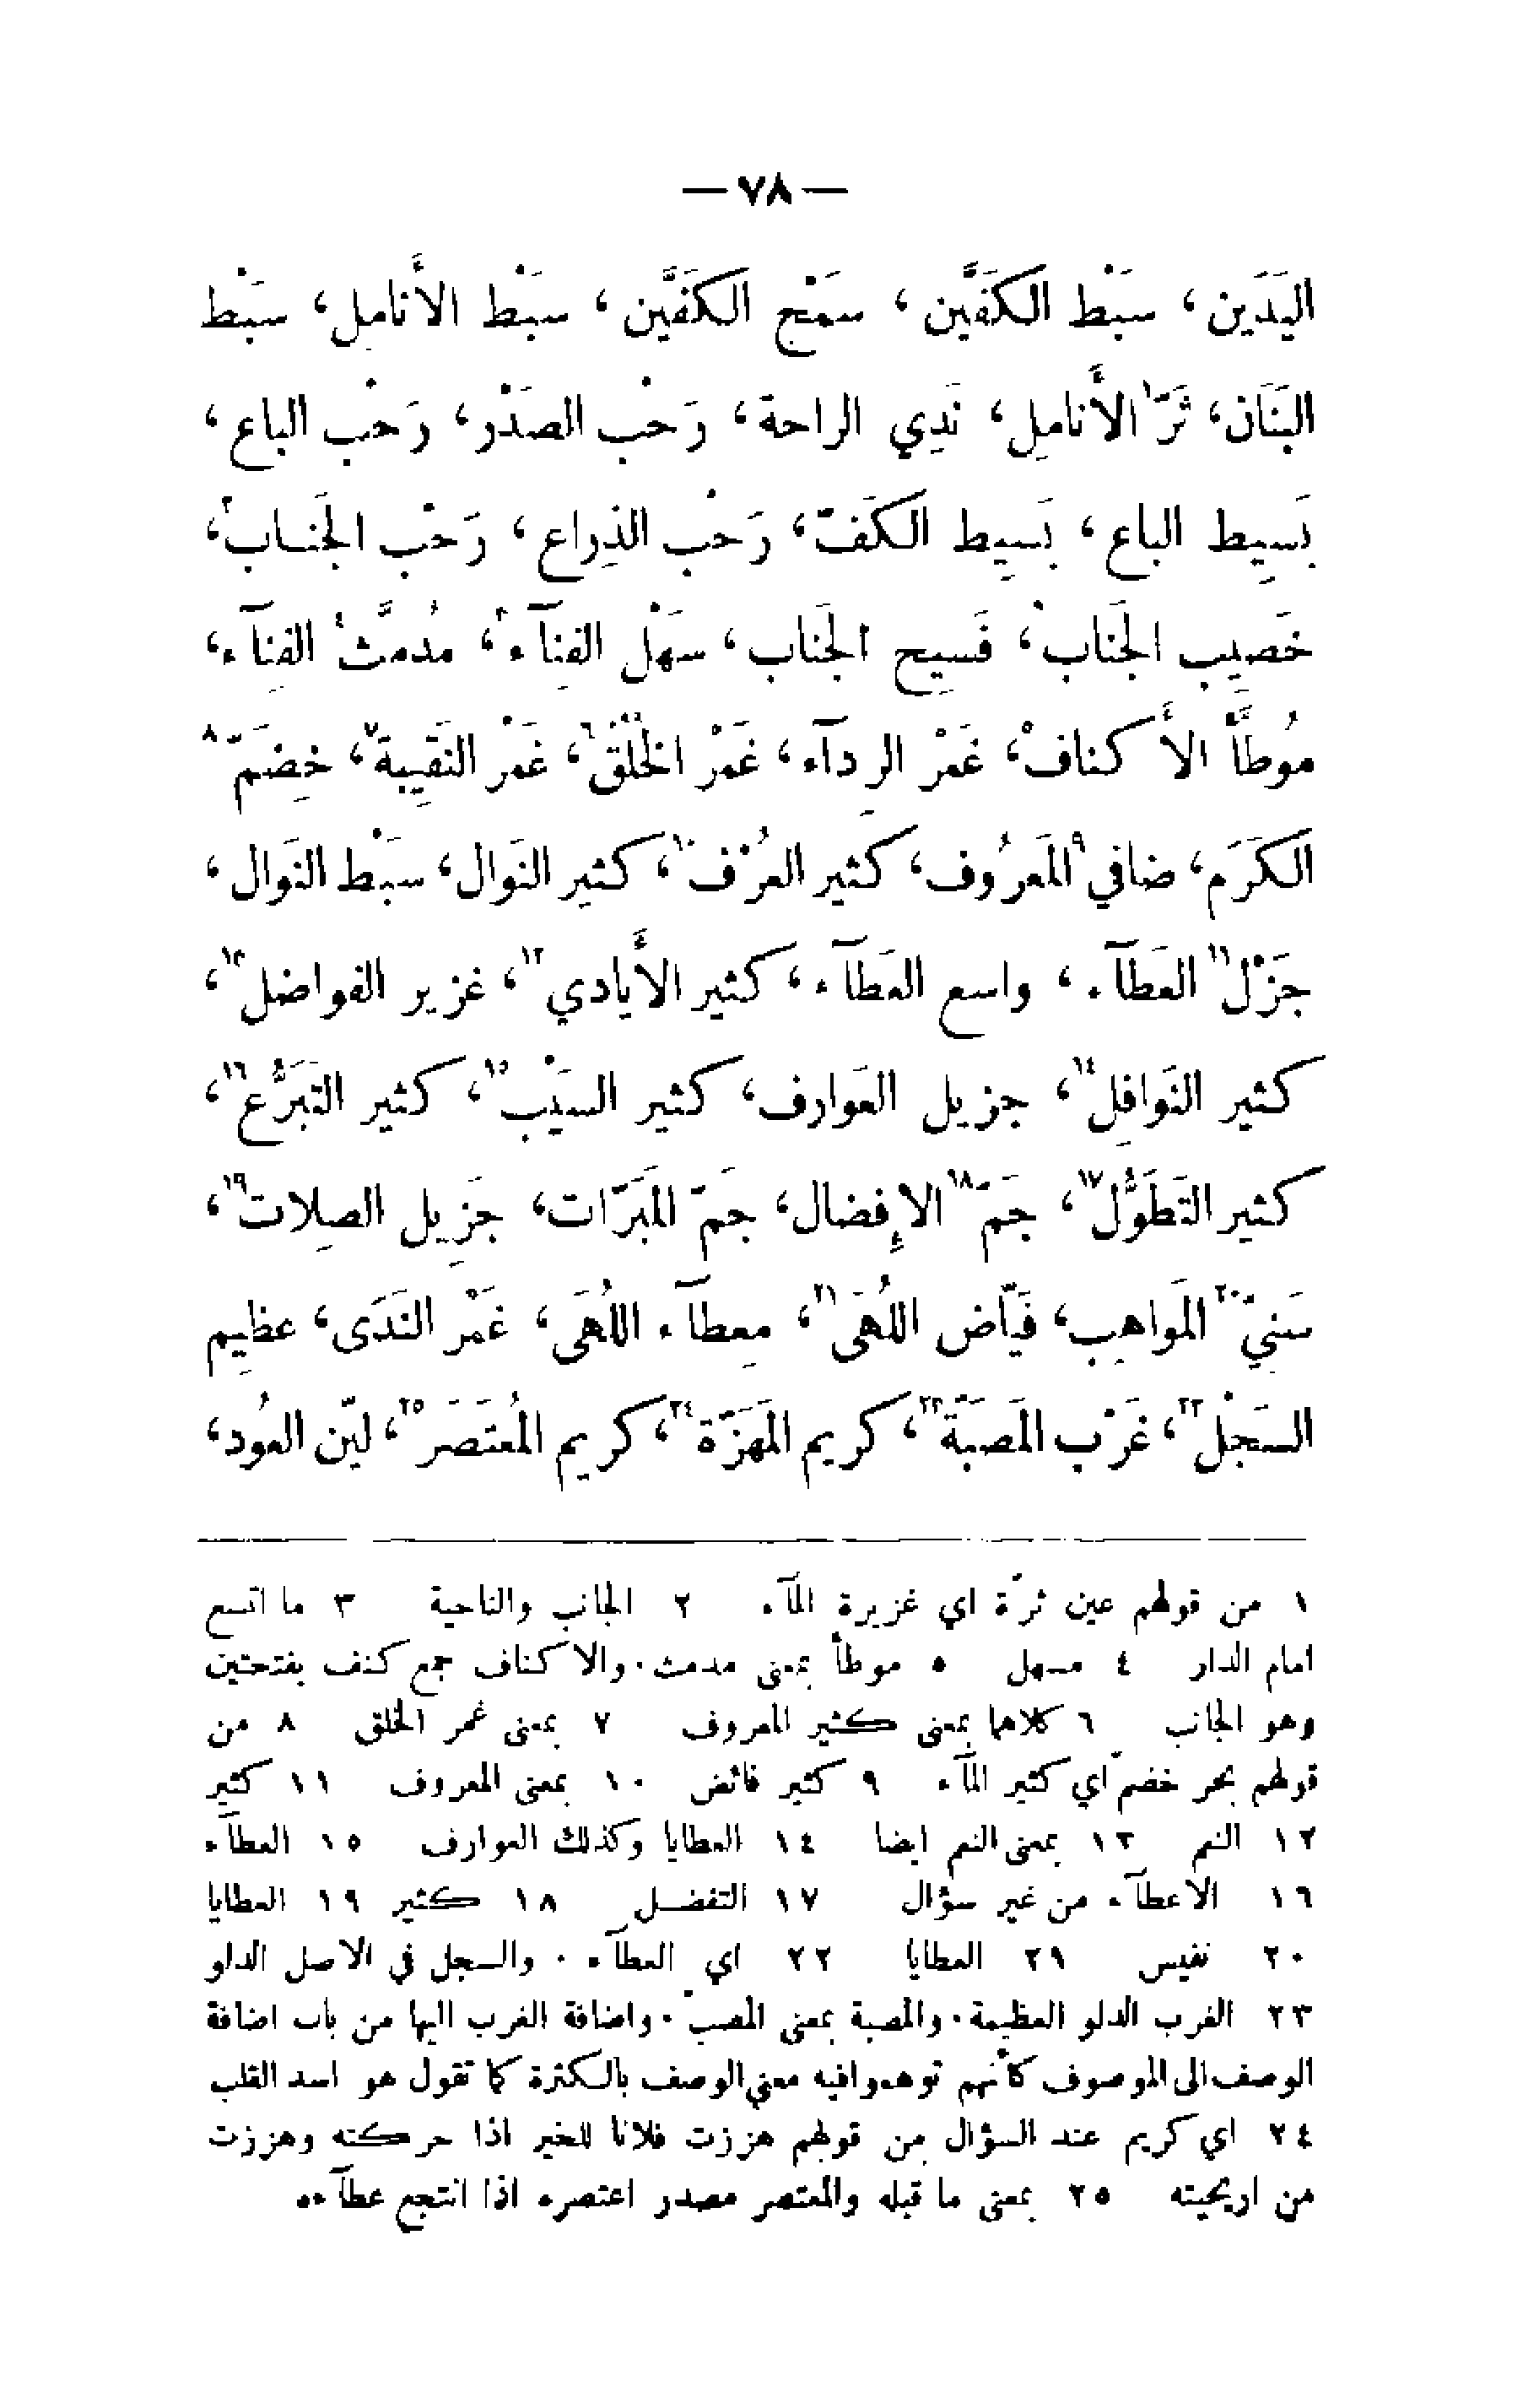 — ٧٨ —
اليَدَين، سَبْط الكَفَّين، سَمْح الكَفَّين، سَبْط الأَنامِل، سَبْط
البَنَان، ثَرّ١ الأَنامِل، نَدِي الراحة، رَحْب الصَدْر، رَحْب الباع،
بَسِيط الباع، بَسِيط الكَفّ، رَحْب الذِراع، رَحْب الجَناب٢،
خَصِيب الجَناب، فَسِيح الجَناب، سَهْل الفِنآء٣، مُدمَّث٤ الفِنآء،
مُوطَّأ الأَكناف٥، غَمْر الرِدآء، غَمْر الخُلُق٦، غَمْر النَقِيبة٧، خِضَمّ٨
الكَرَم، ضافي٩ المَعرُوف، كثير العُرْف١٠، كثير النَوال، سَبْط النَوال،
جَزْل١١ العَطآء، واسع العَطآء، كثير الأَيادي١٢، غزير الفواضل١٣،
كثير النَوافِل١٤، جزيل العَوارف، كثير السَيْب١٥، كثير التَبَرُّع١٦،
كثير التَطَوُّل١٧، جَمّ١٨ الإِفضال، جَمّ المَبَرّات، جَزِيل الصِلات١٩،
سَنيّ٢٠ المَواهِب، فَيّاض اللُهَى٢١، مِعطآء اللُهَى، غَمْر النَدَى، عظِيم
السَجْل٢٢، غَرْب المَصَبّة٢٣، كريم المَهَزّة٢٤، كريم المُعتَصَر٢٥، ليّن العُود،
١ من قولهم عين ثرّة اي غزيرة المآء ٢ الجانب والناحية ٣ ما اتسع
امام الدار ٤ مسهل ٥ موطأ بمعنى مدمث. والاكناف جمع كنف بفتحتين
وهو الجانب ٦ كلاهما بمعنى كثير المعروف ٧ بمعنى غمر الخلق ٨ من
قولهم بحر خضمّ اي كثير المآء ٩ كثير فائض ١٠ بمعنى المعروف ١١ كثير
١٢ النعم ١٣ بمعنى النعم ايضا ١٤ العطايا وكذلك العوارف ١٥ العطآء
١٦ الاعطآء من غير سؤال ١٧ التفضل ١٨ كثير ١٩ العطايا
٢٠ نفيس ٢٩ العطايا ٢٢ اي العطآء. والسجل في الاصل الدلو
٢٣ الغرب الدلو العظيمة. والمصبة بمعنى المصبّ. واضافة الغرب اليها من باب اضافة
الوصف الى الموصوف كأنهم توهموا فيه معنى الوصف بالكثرة كما تقول هو اسد القلب
٢٤ اي كريم عند السؤال من قولهم هززت فلانا للخير اذا حركته وهززت
من اريحيته ٢٥ بمعنى ما قبله والمعتصر مصدر اعتصره اذا انتجع عطآءه